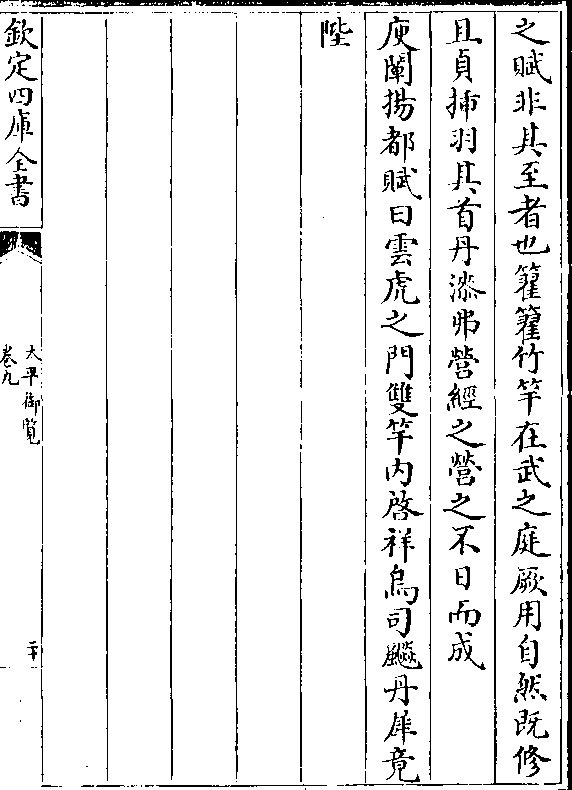 之賦非其至者也籊籊竹竿在武之庭厥用自然既修
且貞挿羽其首丹漆弗營經之營之不日而成
庾闡揚都賦曰雲虎之門雙竿内啓祥烏司飈丹犀竟
陛
欽定四庫全書
太平御覧
卷九
二十